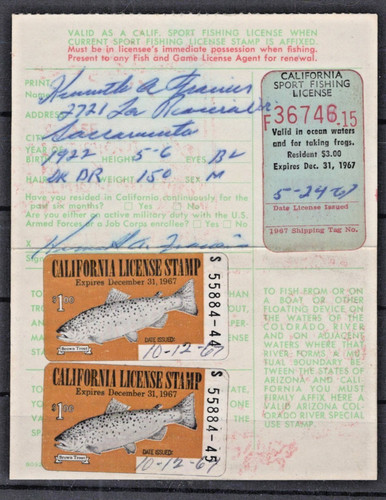 VALID AS A CALIF. SPORT FISHING LICENSE WHEN
CURRENT SPORT FISHING LICENSE STAMP IS AFFIXED.
Must be in licensee's immediate possession when fishing.
Present to any Fish and Game License Agent for renewal.
PRINT
Name Kenneth A
ADDRESS 2721
CITY Sacramento
YEAR OF
1922 HEIGHT 5-6 EYES BL
HAIR DK BR 150 SEX M
Have you resided in California continuously for the
past six months? Yes No
Are you either on active military duty with the U.S.
Armed Forces or a Job Corps enrollee? Yes No
X
CALIFORNIA
SPORT FISHING
LICENSE
F36746.15
Valid in ocean waters
and for taking frogs.
Resident $3.00
Expires Dec. 31, 1967
5-24-67
Date License Issued
1967 Shipping Tag No.
CALIFORNIA LICENSE STAMP
Expires December 31, 1967
$1.00
Brown Trout
DATE ISSUED:
10-12-67
S 55884-44
CALIFORNIA LICENSE STAMP
Expires December 31, 1967
$1.00
Brown Trout
DATE ISSUED:
10-12-67
S 55884-45
TO FISH FROM OR ON
A BOAT OR OTHER
FLOATING DEVICE ON
THE WATERS OF THE
COLORADO RIVER
AND ON ADJACENT
WATERS WHERE THAT
RIVER FORMS A MU-
TUAL BOUNDARY BE-
TWEEN THE STATES OF
ARIZONA AND CALI-
FORNIA YOU MUST
FIRMLY AFFIX HERE A
VALID ARIZONA COLO-
RADO RIVER SPECIAL
USE STAMP.